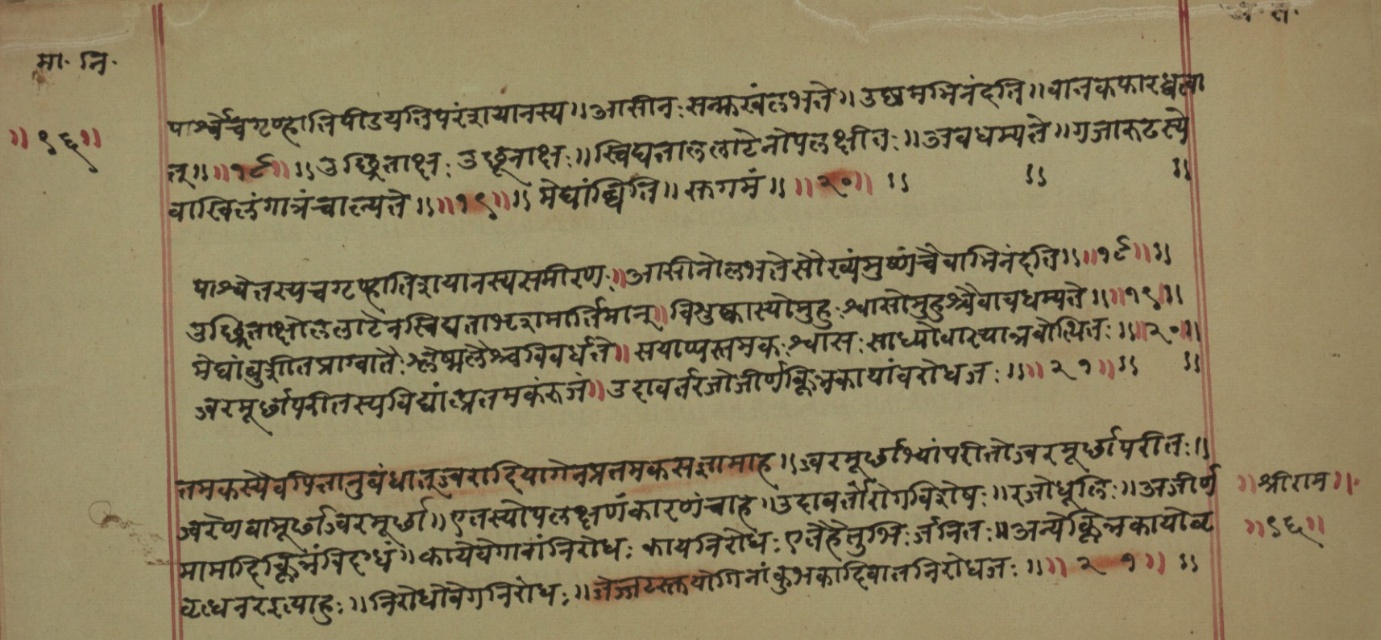 मा. नि.
पार्श्वेचगृण्हातिपीडयतिपरंशयानस्य॥ आसीनःसन्कखंलभते॥ उष्णमभिनंदति॥ वातकफारब्धत्वा
॥९६॥
त्॥ ॥१८॥ ॥ उछ्रिताक्षः उछूनाक्षः॥ स्विद्यताललाटेनोपलक्षीतः॥ अवधम्यते॥ गजारूढस्ये
वाखिलंगात्रंचाल्यते॥ ॥१९॥॥ मेघांब्विति॥ क्तगमं॥ ॥२०॥ ॥ ॥ ॥
पार्श्वेतस्यचगृण्हातिशयानस्यसमीरणः॥ आसीनोलभतेसौख्यंमुष्णंचैवाभिनंदति॥ ॥१८॥ ॥
उछ्रिताक्षोललाटेनस्विद्यताभृशमार्तिमान्॥ विशुष्कास्योमुहुःश्वासोमुहुश्चैवावधम्यते॥ ॥१९॥॥
मेघांबुशीतप्राग्वातैःश्लेष्मलैश्चविवर्धते॥ सयाप्यस्तमकःश्वासःसाध्योवास्यान्नवोत्थितः॥ ॥२०॥
ज्वरमूर्छापरीतस्यविद्यात्प्रतमकंरुजं॥ उदावर्तरजोजीर्णक्लिन्नकायांवरोधजः॥ ॥ २१॥ ॥ ॥
तमकस्यैवपित्तानुबंधात्ज्वरादियोगेनप्रतमकसंज्ञामाह॥ ज्वरमूर्छाभ्यांपरीतोज्वरमूर्छापरीतः॥
ज्वरेणवामूर्छाज्वरमूर्छा॥ एतस्योपलक्षणंकारणंचाह॥ उदावर्तोरोगविशेषः॥ रजोधूलिः॥ अजीर्ण
॥श्रीराम॥
मामादिक्लिन्नंविदग्धं॥ कायेवेगानांनिरोधः कायनिरोधः एतैर्हेतुभिःर्जनितः॥ अन्येक्लिन्नकायोवृ
॥९६॥
द्धनरइत्याहुः॥ निरोधोवेगनिरोधः॥ जेज्जटस्तयोगिनांकुंभकादिवातनिरोधजः॥ ॥ २१॥ ॥